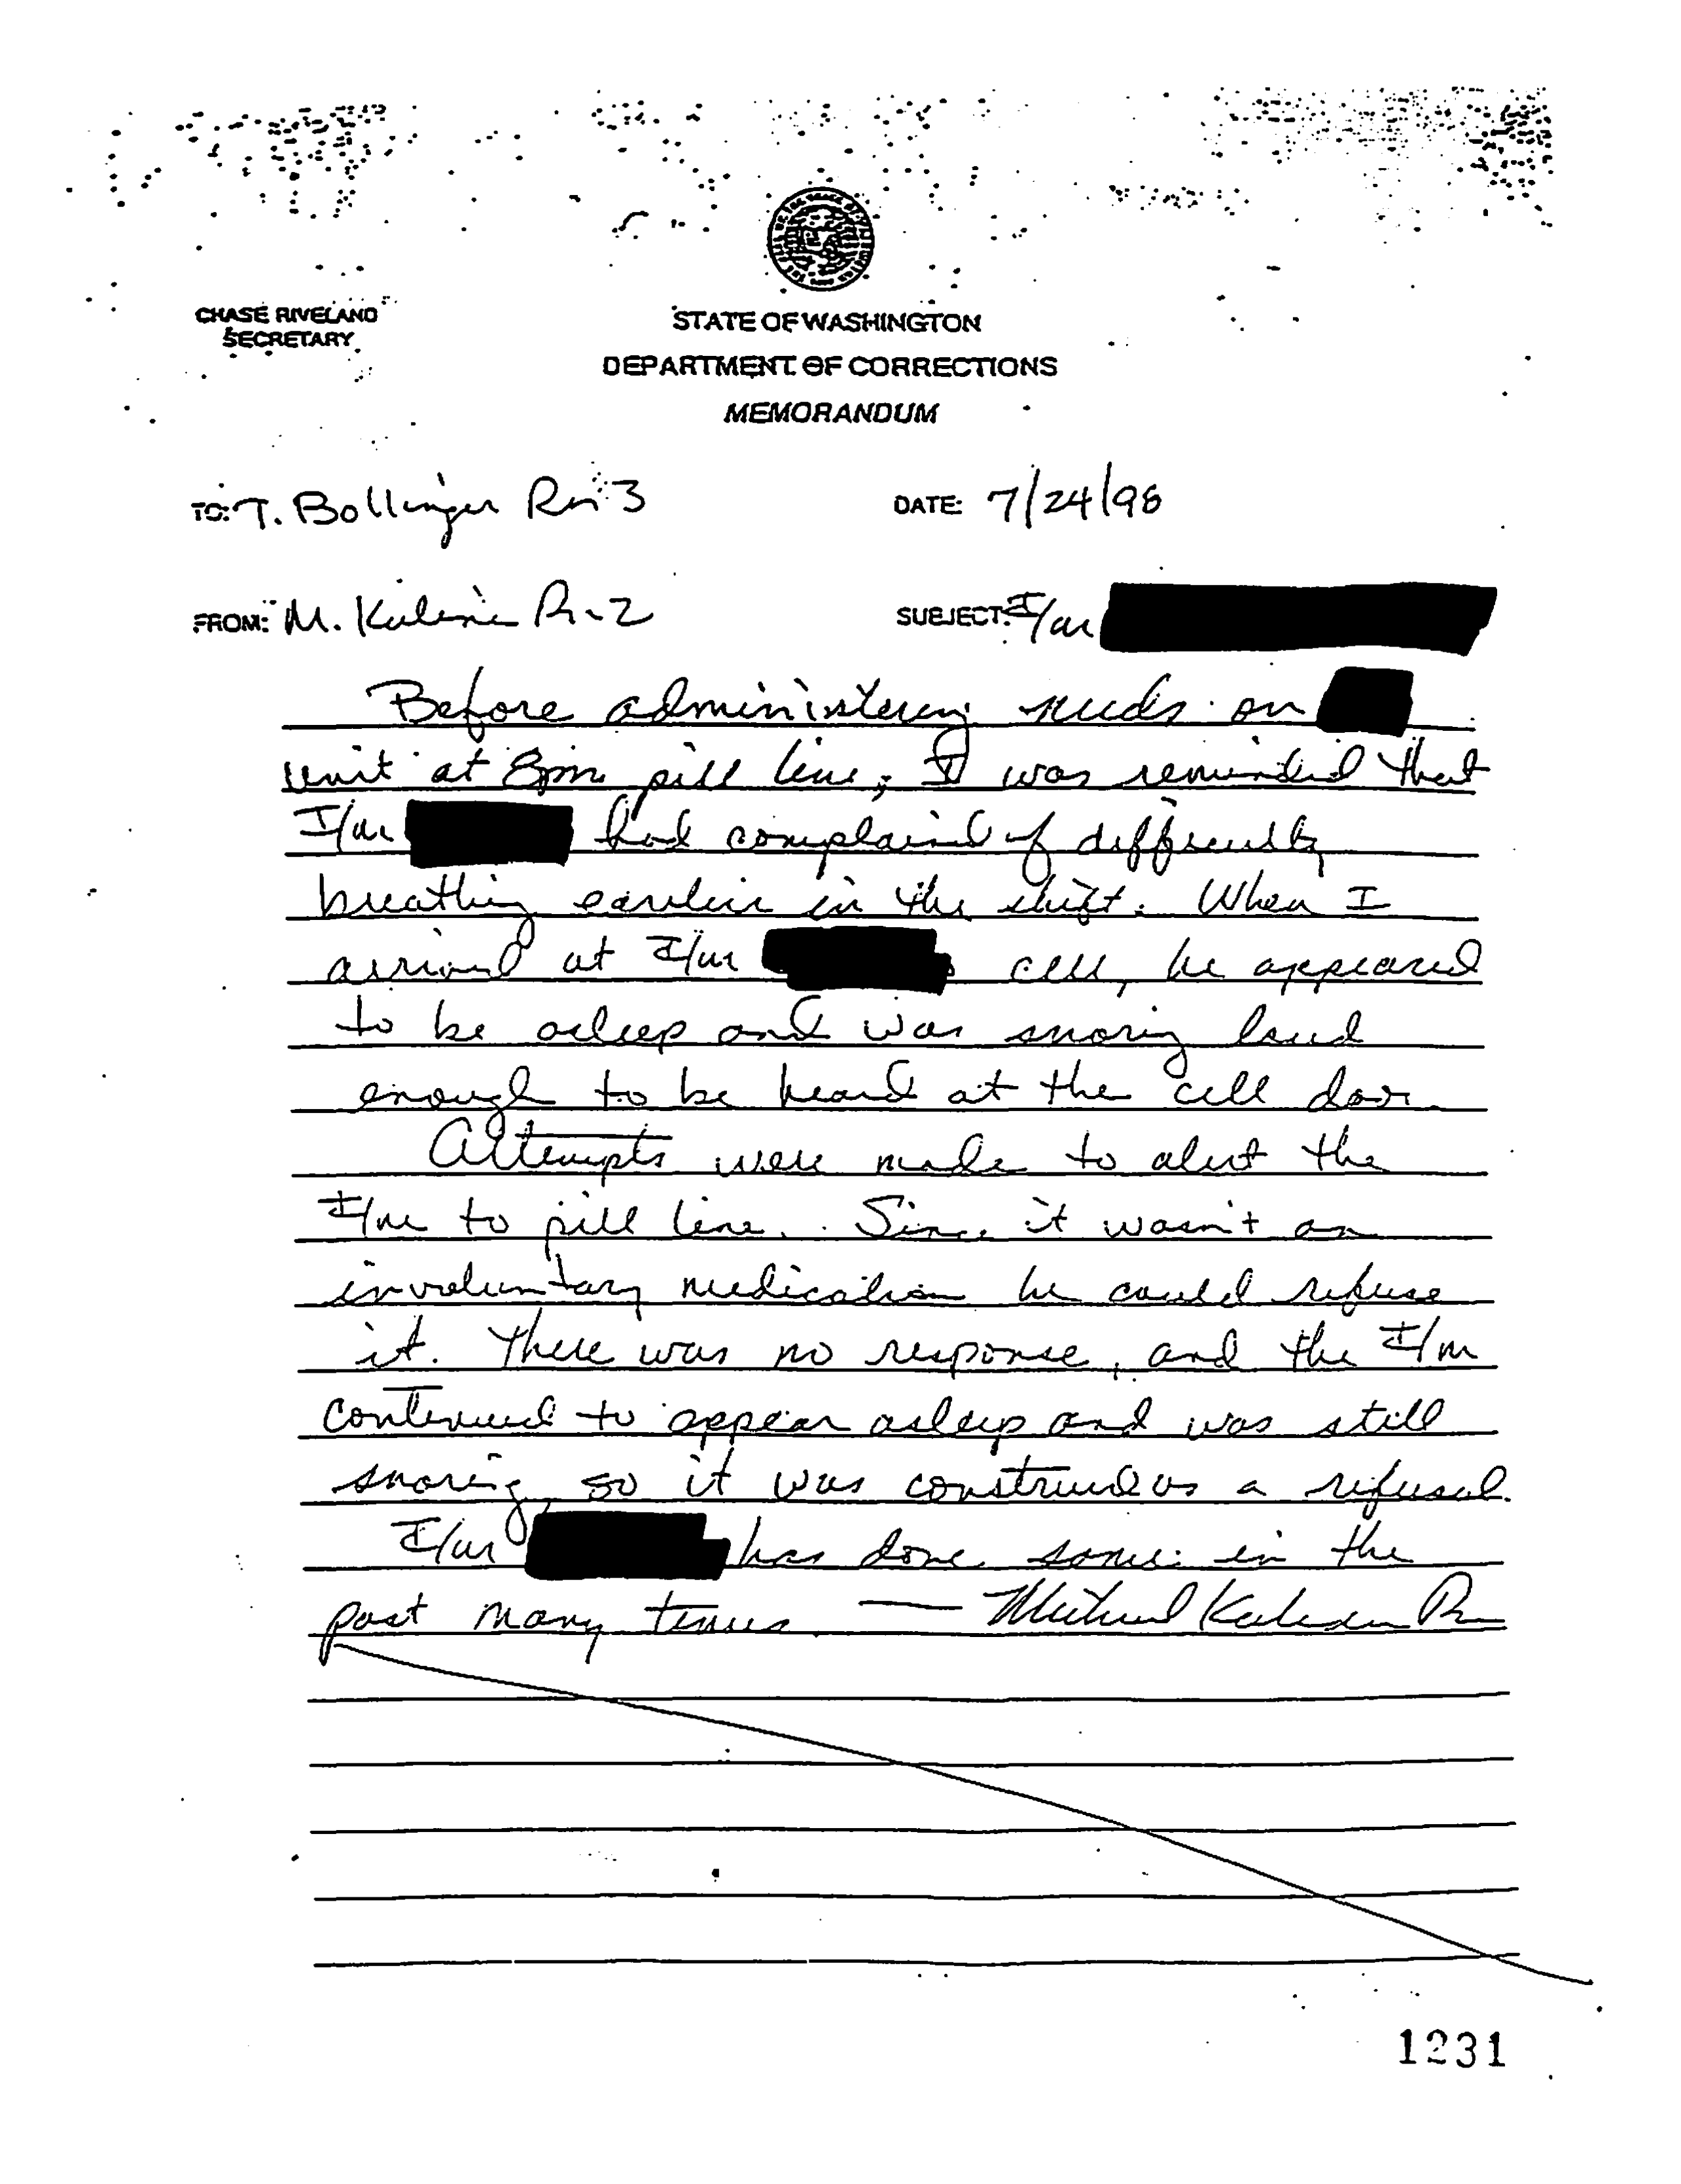 CHASE RIVELAND
SECRETARY
STATE OF WASHINGTON
DEPARTMENT OF CORRECTIONS
MEMORANDUM
TO: T. Bollinger Rn 3
DATE: 7/24/98
FROM: M. Rn 2
SUBJECT: I/m
Before administering meds on
unit at 8pm pill line, I was reminded that
I/m had complained of difficulty
breathing earlier in the shift. When I
arrived at I/m cell, he appeared
to be asleep and was snoring loud
enough to be heard at the cell door.
Attempts were made to alert the
I/m to pill line. Since it wasn't an
involuntary medication he could refuse
it. There was no response, and the I/m
continued to appear asleep and was still
snoring, so it was construed as a refusal.
I/m has done same in the
past many times. — Michael Rn
1231